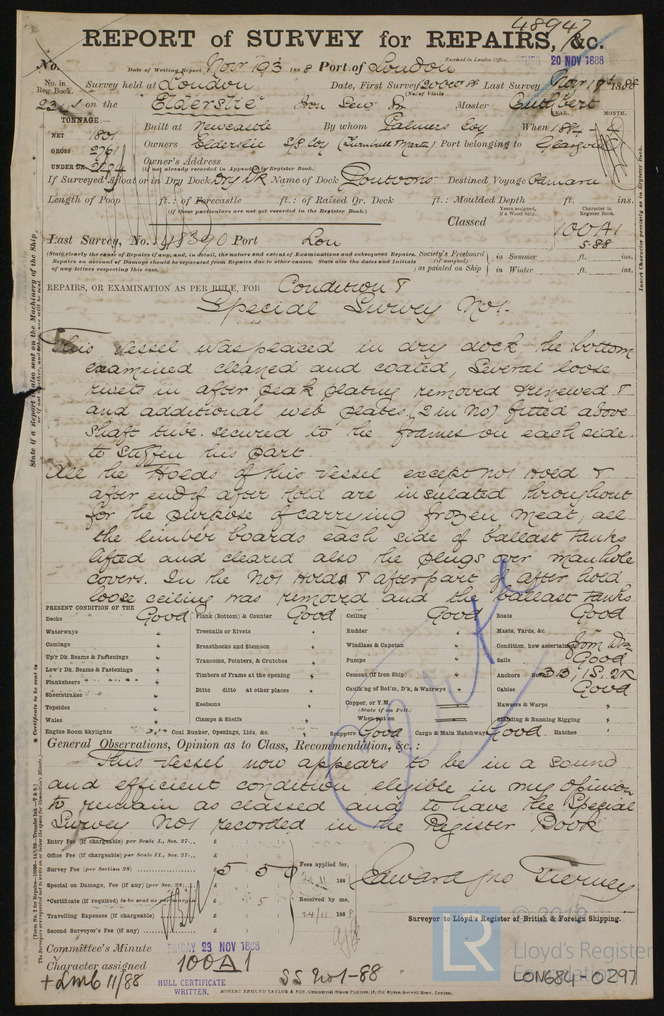 48947
REPORT of SURVEY for REPAIRS, &c.
No. Date of Writing Report Novr 193 188 8 Port of London Received in London Office, TUES 20 NOV 1888
No. in Reg. Book. Survey held at London Date, First Survey Last Survey Novr 1888
on the "Elderslie" Iron Screw Sr Master Cuthbert
TONNAGE Built at Newcastle By whom Palmers Coy When 1884 MONTH. 4
NET 1801
GROSS 2761 Owners Elderslie S/S Coy (Turnbull Martin) Port belonging to Glasgow
UNDER DK Owner's Address
(if not already recorded in Appendix to Register Book.)
If Surveyed Afloat or in Dry Dock Dry Dk Name of Dock Destined Voyage Oamaru
Length of Poop ft. : of Forecastle ft. : of Raised Qr. Deck ft. : Moulded Depth ft. ins.
(if these particulars are not yet recorded in the Register Book.)
Classed 100A1
5.88
Last Survey, No. 48390 Port Lon
Society's Freeboard (if assigned) as painted on Ship in Summer ft. ins.
in Winter ft. ins.
REPAIRS, OR EXAMINATION AS PER RULE, FOR Condition &
Special Survey No 1.
This vessel was placed in dry dock, the bottom
examined cleaned and coated, Several loose
rivets in after peak plating removed & renewed &
and additional web plates (2 in No) fitted above
shaft tube. secured to the frames on each side
to stiffen this part.
All the Holds of this vessel except No 1 Hold &
after end of after hold are insulated throughout
for the purpose of carrying frozen meat, all
the limber boards each side of ballast tanks
lifted and cleared also the plugs over manhole
covers. In the No 1 Hold & after part of after hold
loose ceiling was removed and the ballast tanks
PRESENT CONDITION OF THE
Decks Good Plank (Bottom) & Counter Good Ceiling Good Boats Good
Waterways " Treenails or Rivets " Rudder " Masts, Yards, &c. "
Comings " Breasthooks and Stemson " Windlass & Capstan " Condition, how ascertained from Dk
Up'r Dk Beams & Fastenings " Transoms, Pointers, & Crutches " Pumps " Sails Good
Low'r Dk Beams & Fastenings " Timbers of Frame at the opening " Cement (if Iron Ship) " Anchors No. 3B, 1S. 2K
Planksheers " Ditto ditto at other places " Caulk'ng of Bot'm, D'k, & Watrwys " Cables Good
Sheerstrakes " Keelsons " Copper, or Y.M. Hawsers & Warps "
Topsides " Clamps & Shelfs " (State if on Felt.) Standing & Running Rigging "
Wales " When put on
Engine Room Skylights " Coal Bunker, Openings, Lids, &c. " Scuppers Good Cargo & Main Hatchways Good Hatches "
General Observations, Opinion as to Class, Recommendation, &c. :
This vessel now appears to be in a sound
and efficient condition eligible in my opinion
to remain as classed and to have the Special
Survey No 1 recorded in the Register Book
Entry Fee (if chargeable) per Scale I., Sec. 27 £
Office Fee (if chargeable) per Scale II., Sec. 27 £
Survey Fee (per Section 28) £ 5 5 0 Fees applied for, 188
Special on Damage, Fee (if any) (per Sec. 28) £
*Certificate (if required) to be sent as per margin £ 5 Received by me,
Travelling Expenses (if chargeable) £ 24/11 188
Second Surveyor's Fee (if any) £
Edward Jno Tierney
Surveyor to Lloyd's Register of British & Foreign Shipping.
Committee's Minute FRIDAY 23 NOV 1888
Character assigned 100A1
+LMC 11/88
HULL CERTIFICATE WRITTEN.
SS No 1-88
LR
© 2019
Lloyd's Register Foundation
LON684-0297
Cert